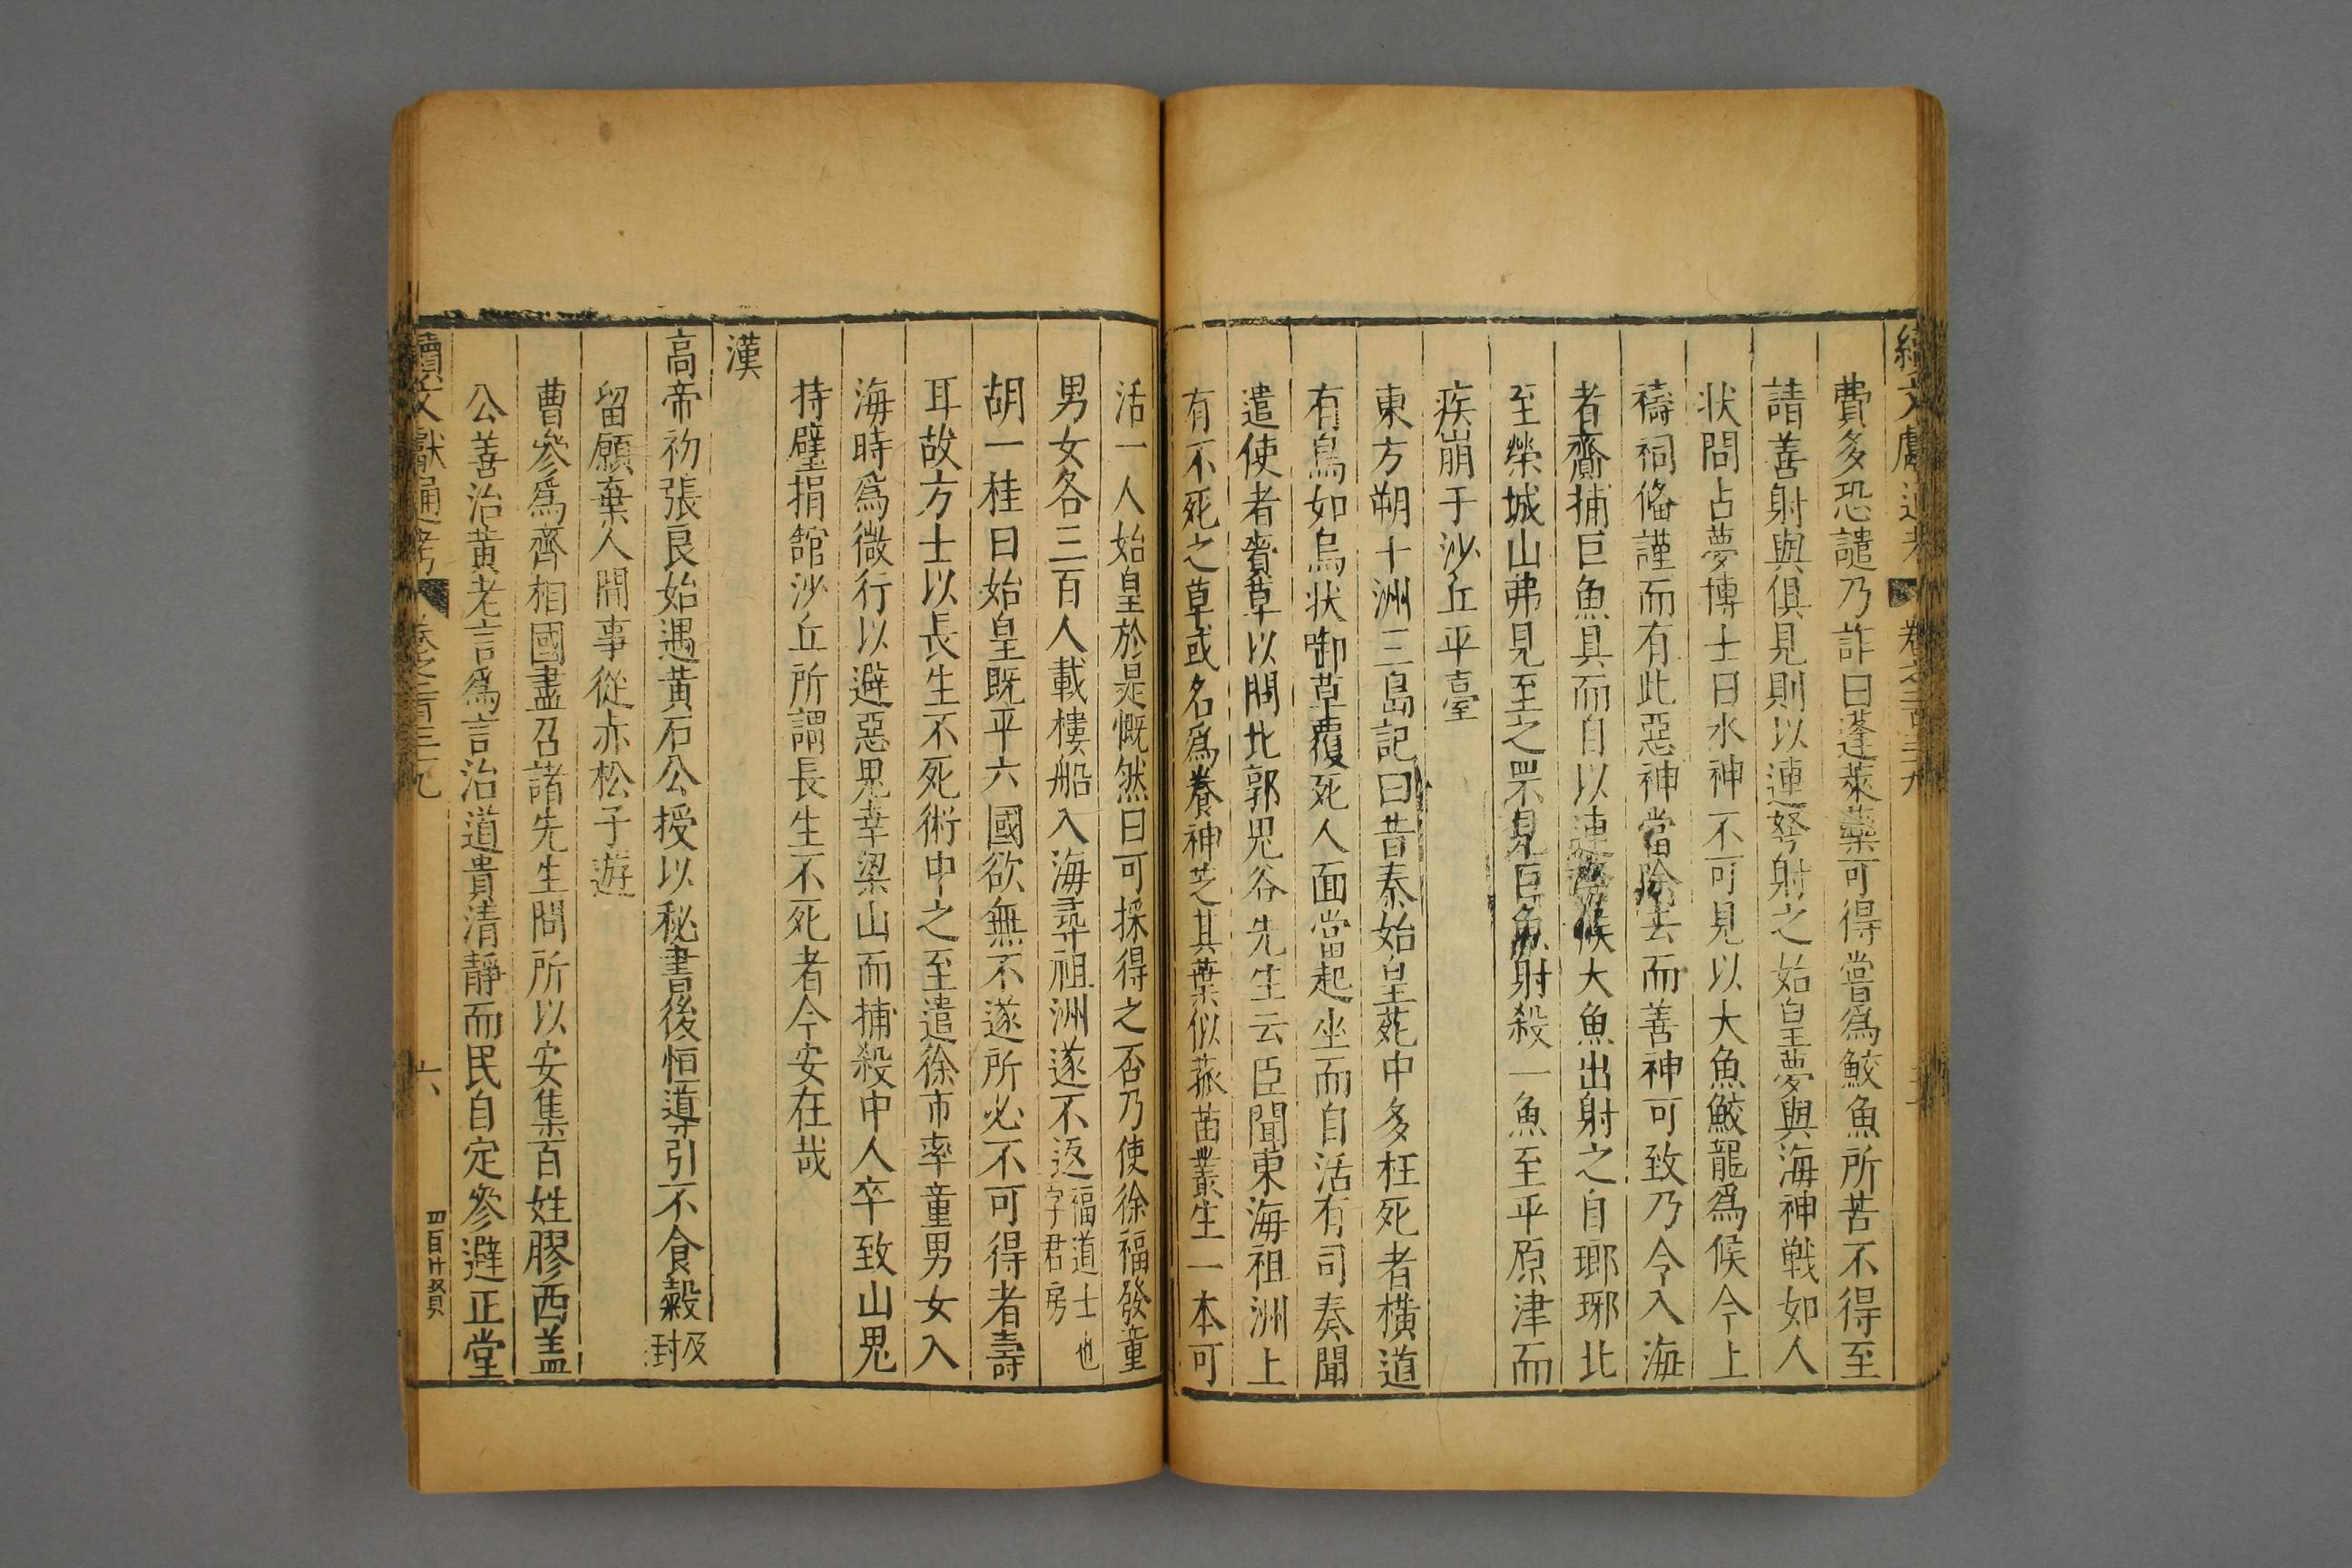 續文獻通考 卷之二百三十九
費多恐譴乃詐曰蓬萊藥可得嘗爲鮫魚所苦不得至
請善射與俱見則以連弩射之始皇夢與海神戰如人
状問占夢博士曰水神不可見以大魚鮫龍爲候今上
禱祠俻謹而有此惡神當除去而善神可致乃令入海
者齎捕巨魚具而自以連弩候大魚出射之自瑯琊北
至榮城山弗見至之罘見巨魚射殺一魚至平原津而
疾崩于沙丘平臺
東方朔十洲三島記曰昔秦始皇苑中多枉死者橫道
有鳥如烏状啣草覆死人面當起坐而自活有司奏聞
遣使者賫草以問北郭鬼谷先生云臣聞東海祖洲上
有不死之草或名爲養神芝其葉似菰苗叢生一本可
活一人始皇於是慨然曰可採得之否乃使徐福發童
男女各三百人載樓船入海尋祖洲遂不返福道士也字君房
胡一桂曰始皇既平六國欲無不遂所必不可得者壽
耳故方士以長生不死術中之至遣徐市率童男女入
海時爲微行以避惡鬼幸梁山而捕殺中人卒致山鬼
持璧捐舘沙丘所謂長生不死者今安在哉
漢
高帝初張良始遇黃石公授以秘書後恒導引不食穀及封
留願棄人間事從赤松子遊
曹參爲齊相國盡召諸先生問所以安集百姓膠西盖
公善治黃老言爲言治道貴清靜而民自定參避正堂
續文獻通考 卷之二百三十九 六 四百廿 賢